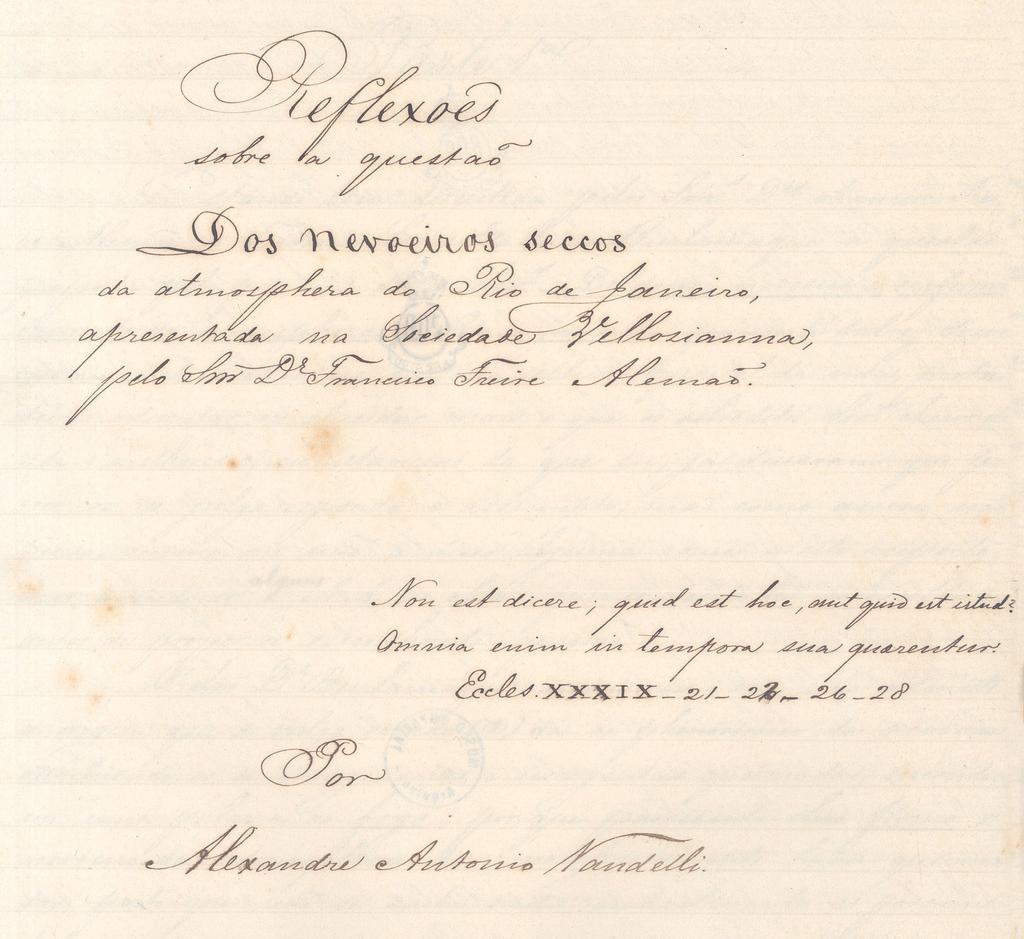 Reflexoẽs
sobre a questaõ
Dos nevoeiros seccos
da atmosphera do Rio de Janeiro,
apresentada na Sociedade Vellosianna,
pelo Snr Dr Francisco Freire Alemaõ.
Non est dicere; quid est hoc, aut quid est istud?
Omnia enim in tempora sua quærentur.
Eccles. XXXIX - 21 - 22 - 26 - 28
Por
Alexandre Antonio Vandelli.